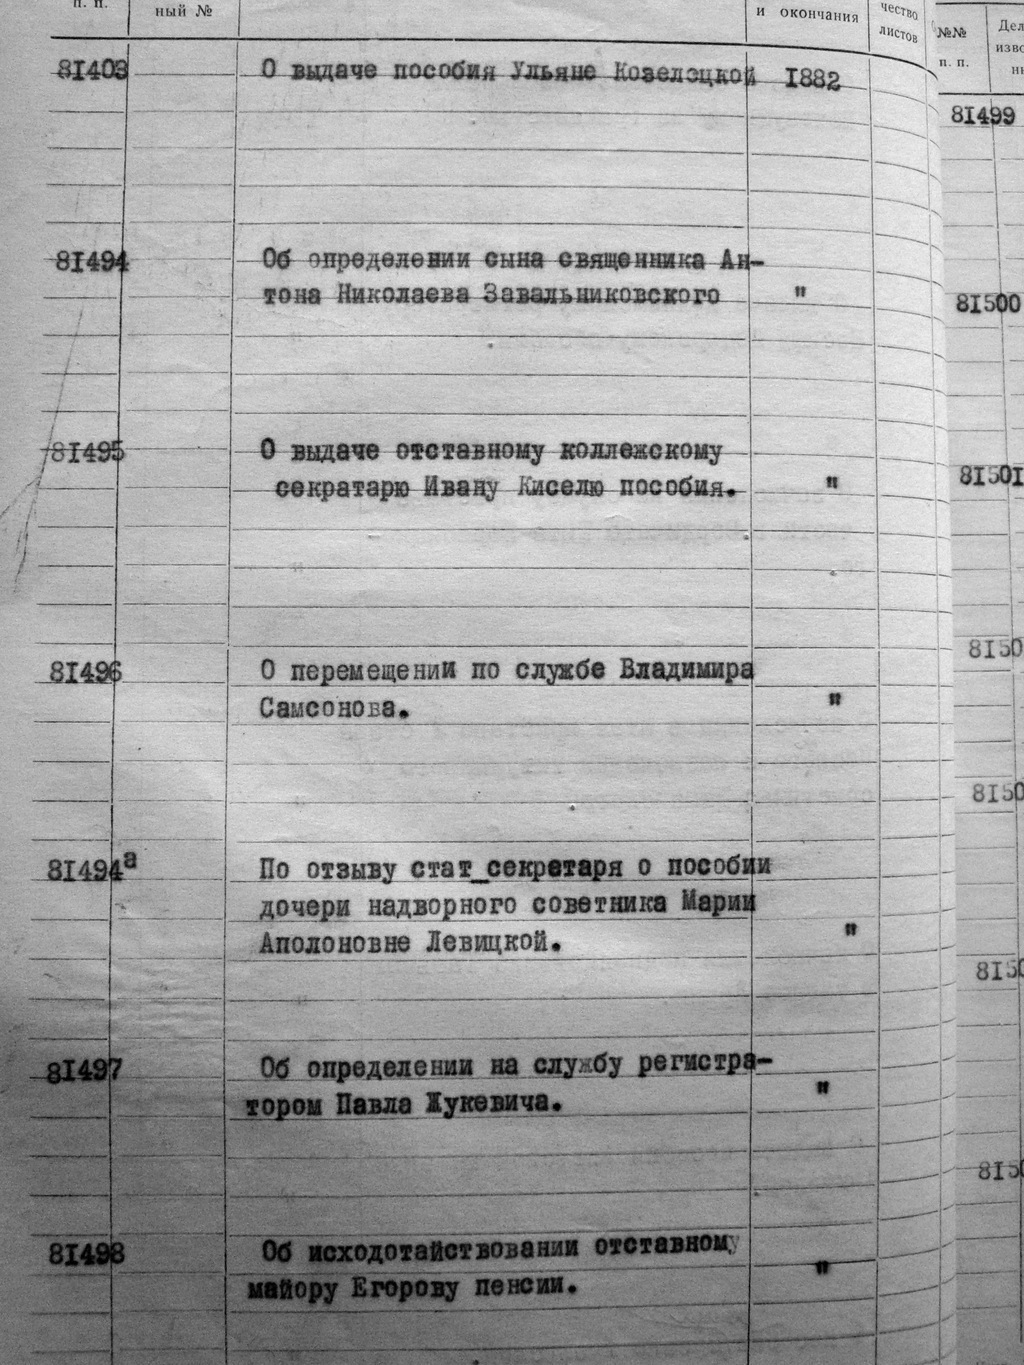 п. п.
ный №
и окончания
чество
листов
81403 О выдаче пособия Ульяне Козелецкой 1882
81494 Об определении сына священника Ан-
тона Николаева Завальниковского "
81495 О выдаче отставному коллежскому
секратарю Ивану Киселю пособия. "
81496 О перемещении по службе Владимира
Самсонова. "
81494а По отзыву стат_секретаря о пособии
дочери надворного советника Марии
Аполоновне Левицкой. "
81497 Об определении на службу регистра-
тором Павла Жукевича. "
81498 Об исходотайствовании отставному
майору Егорову пенсии. "
№№
п. п.
Дел
изво
81499
81500
81501
8150
8150
8150
8150